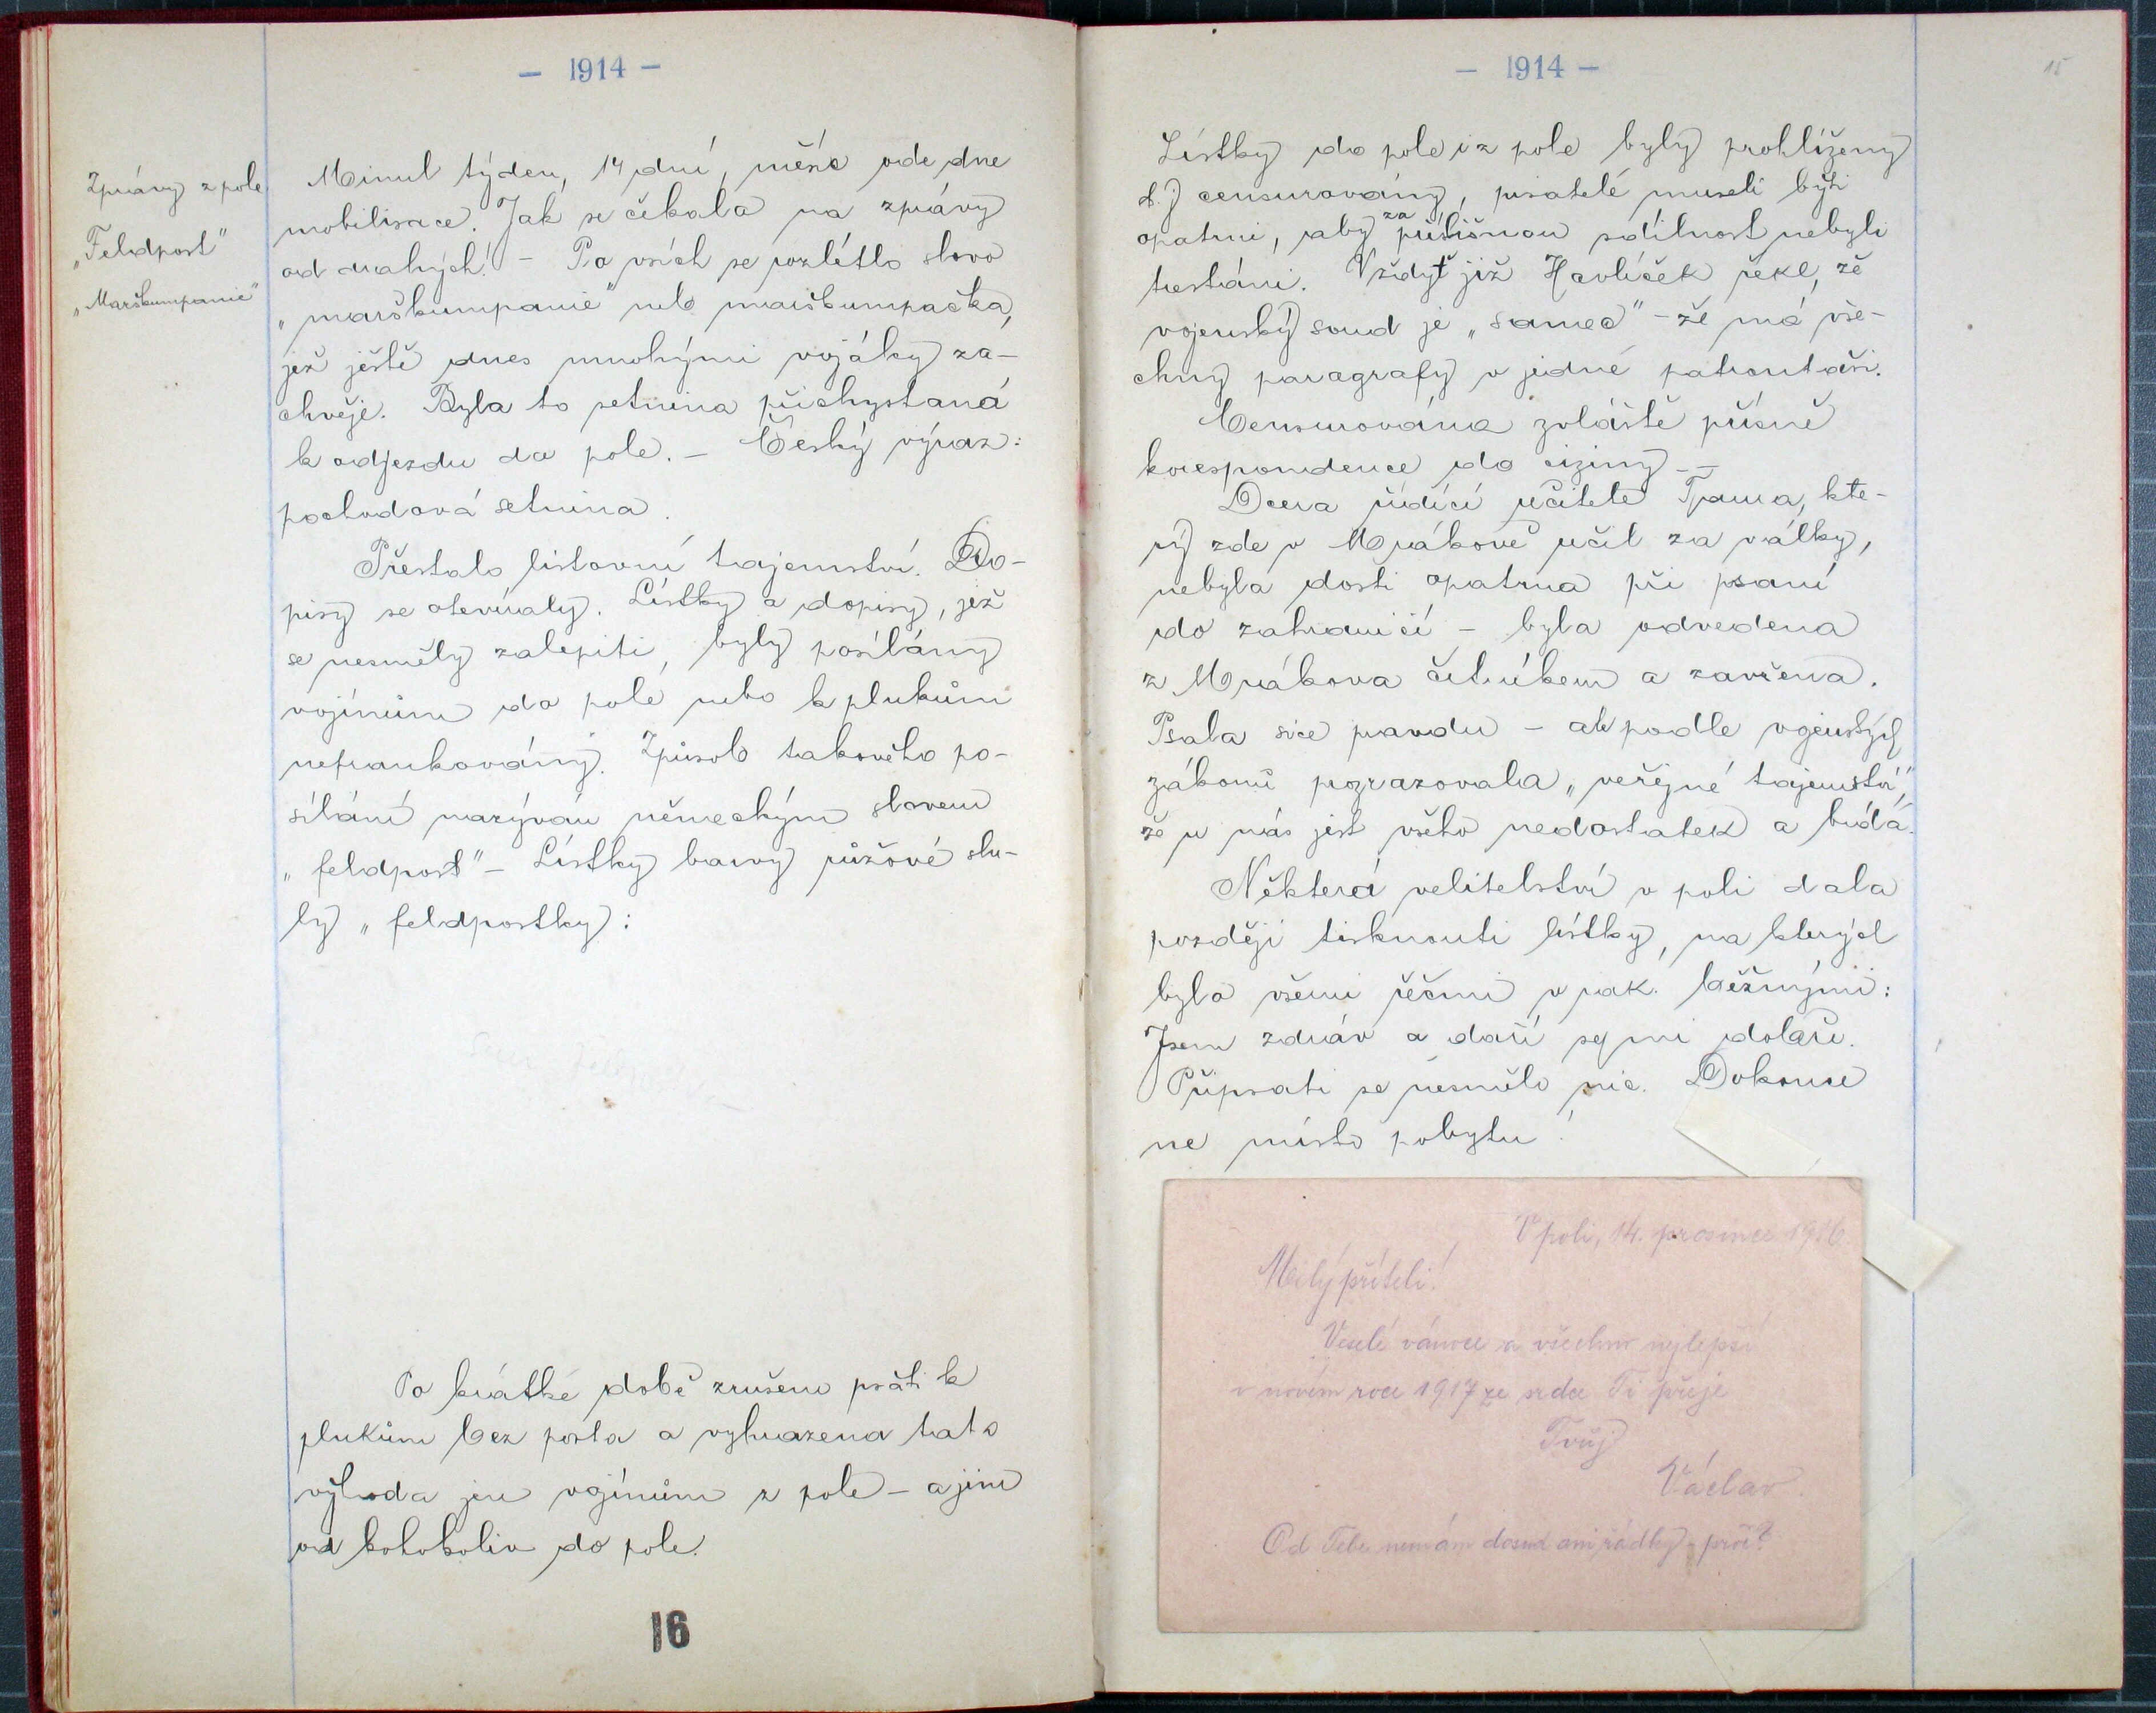 - 1914 -
Zprávy z pole
„Feldpost"
„Marškumpanie"
Minul týden, 14 dní, měsíc ode dne
mobilisace. Jak se čekalo na zprávy
od drahých! - Po vsích se rozlétlo slovo
„marškumpanie" nebo marškumpačka,
jež ještě dnes mnohými vojáky za-
chvěje. Byla to setnina přichystaná
k odjezdu do pole. - Český výraz:
pochodová setnina.
Přestalo listovní tajemství. Do-
pisy se otevíraly. Lístky a dopisy, jež
se nesměly zalepiti, byly posílány
vojínům do pole nebo k plukům
nefrankovány. Způsob takového po-
sílání nazýván německým slovem
„feldpost" - Lístky barvy růžové slu-
ly „feldpostky):
Po krátké době zrušeno psáti k
plukům bez porta a vyhrazena tato
výhoda jen vojínům z pole - a jim
od kohokoliv do pole.
16
- 1914 -
15
Lístky do pole i z pole byly prohlíženy
t.j. censurovány, pisatelé museli býti
opatrni, aby za přílišnou sdílnost nebyli
trestáni. Vždyť již Havlíček řekl, že
vojenský soud je „samec" - že má vše-
chny paragrafy v jedné patrontaši.
Censurována zvláště přísně
korespondence do ciziny -
Dcera řídící učitele Tpama, kte-
rý zde v Mrákově učil za války,
nebyla dosti opatrna při psaní
do zahraničí - byla odvedena
z Mrákova četníkem a zavřena.
Psala sice pravdu - ale podle vojenských
zákonů prozrazovala „veřejné tajemství",
že u nás jest všeho nedostatek a bída.
Některá velitelství v poli dala
později tisknouti lístky, na kterých
bylo všemi řečmi v rak. běžnými:
Jsem zdráv a daří se mi dobře.
Připsati se nesmělo nic. Dokonce
ne místo pobytu!
V poli, 14. prosince 1916.
Milý příteli!
Veselé vánoce a všechno nejlepší
v novém roce 1917 ze srdce Ti přeje
Tvůj
Václav.
Od Tebe nemám dosud ani řádky - proč?